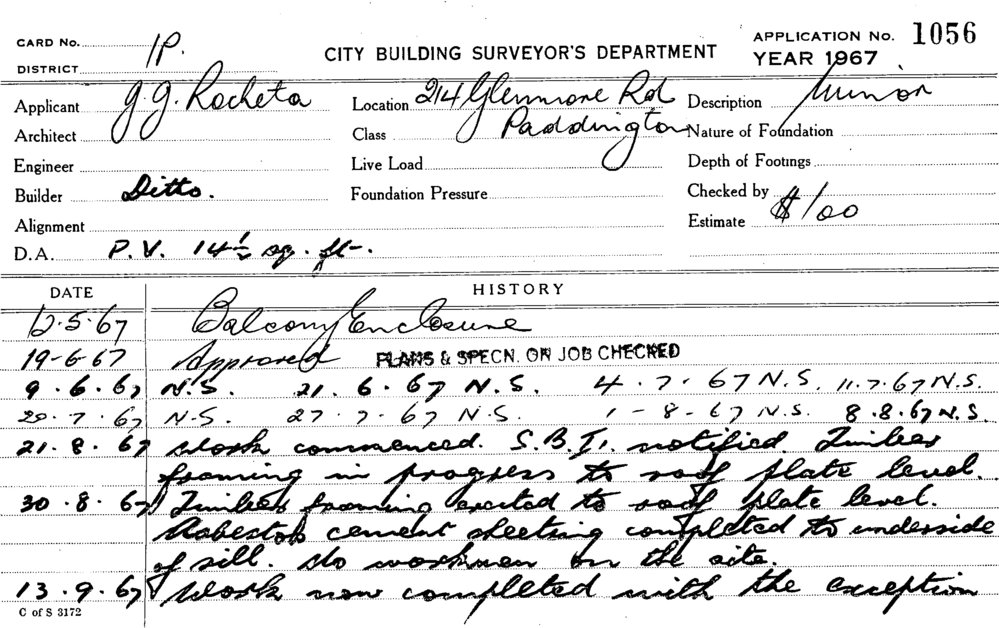 CARD No. 1P. CITY BUILDING SURVEYOR'S DEPARTMENT APPLICATION No. 1056
DISTRICT YEAR 1967
Applicant G. G. Rocheta Location 214 Glenmore Rd Description Minor
Architect Class Paddington Nature of Foundation
Engineer Live Load Depth of Footings
Builder Ditto. Foundation Pressure Checked by
Alignment Estimate $100
D.A. P.V. 14½ sq. ft.
DATE HISTORY
12.5.67 Balcony Enclosure
19-6-67 Approved PLANS & SPECN. ON JOB CHECKED
9.6.67 N.S. 21.6.67 N.S. 4.7.67 N.S. 11.7.67 N.S.
20.7.67 N.S. 27.7.67 N.S. 1-8-67 N.S. 8.8.67 N.S.
21.8.67 Work commenced. S.B.I. notified. Timber
framing in progress to roof plate level.
30.8.67 Timber framing erected to roof plate level.
Asbestos cement sheeting completed to underside
of sill. No workmen on the site.
13.9.67 Work now completed with the exception
C of S 3172